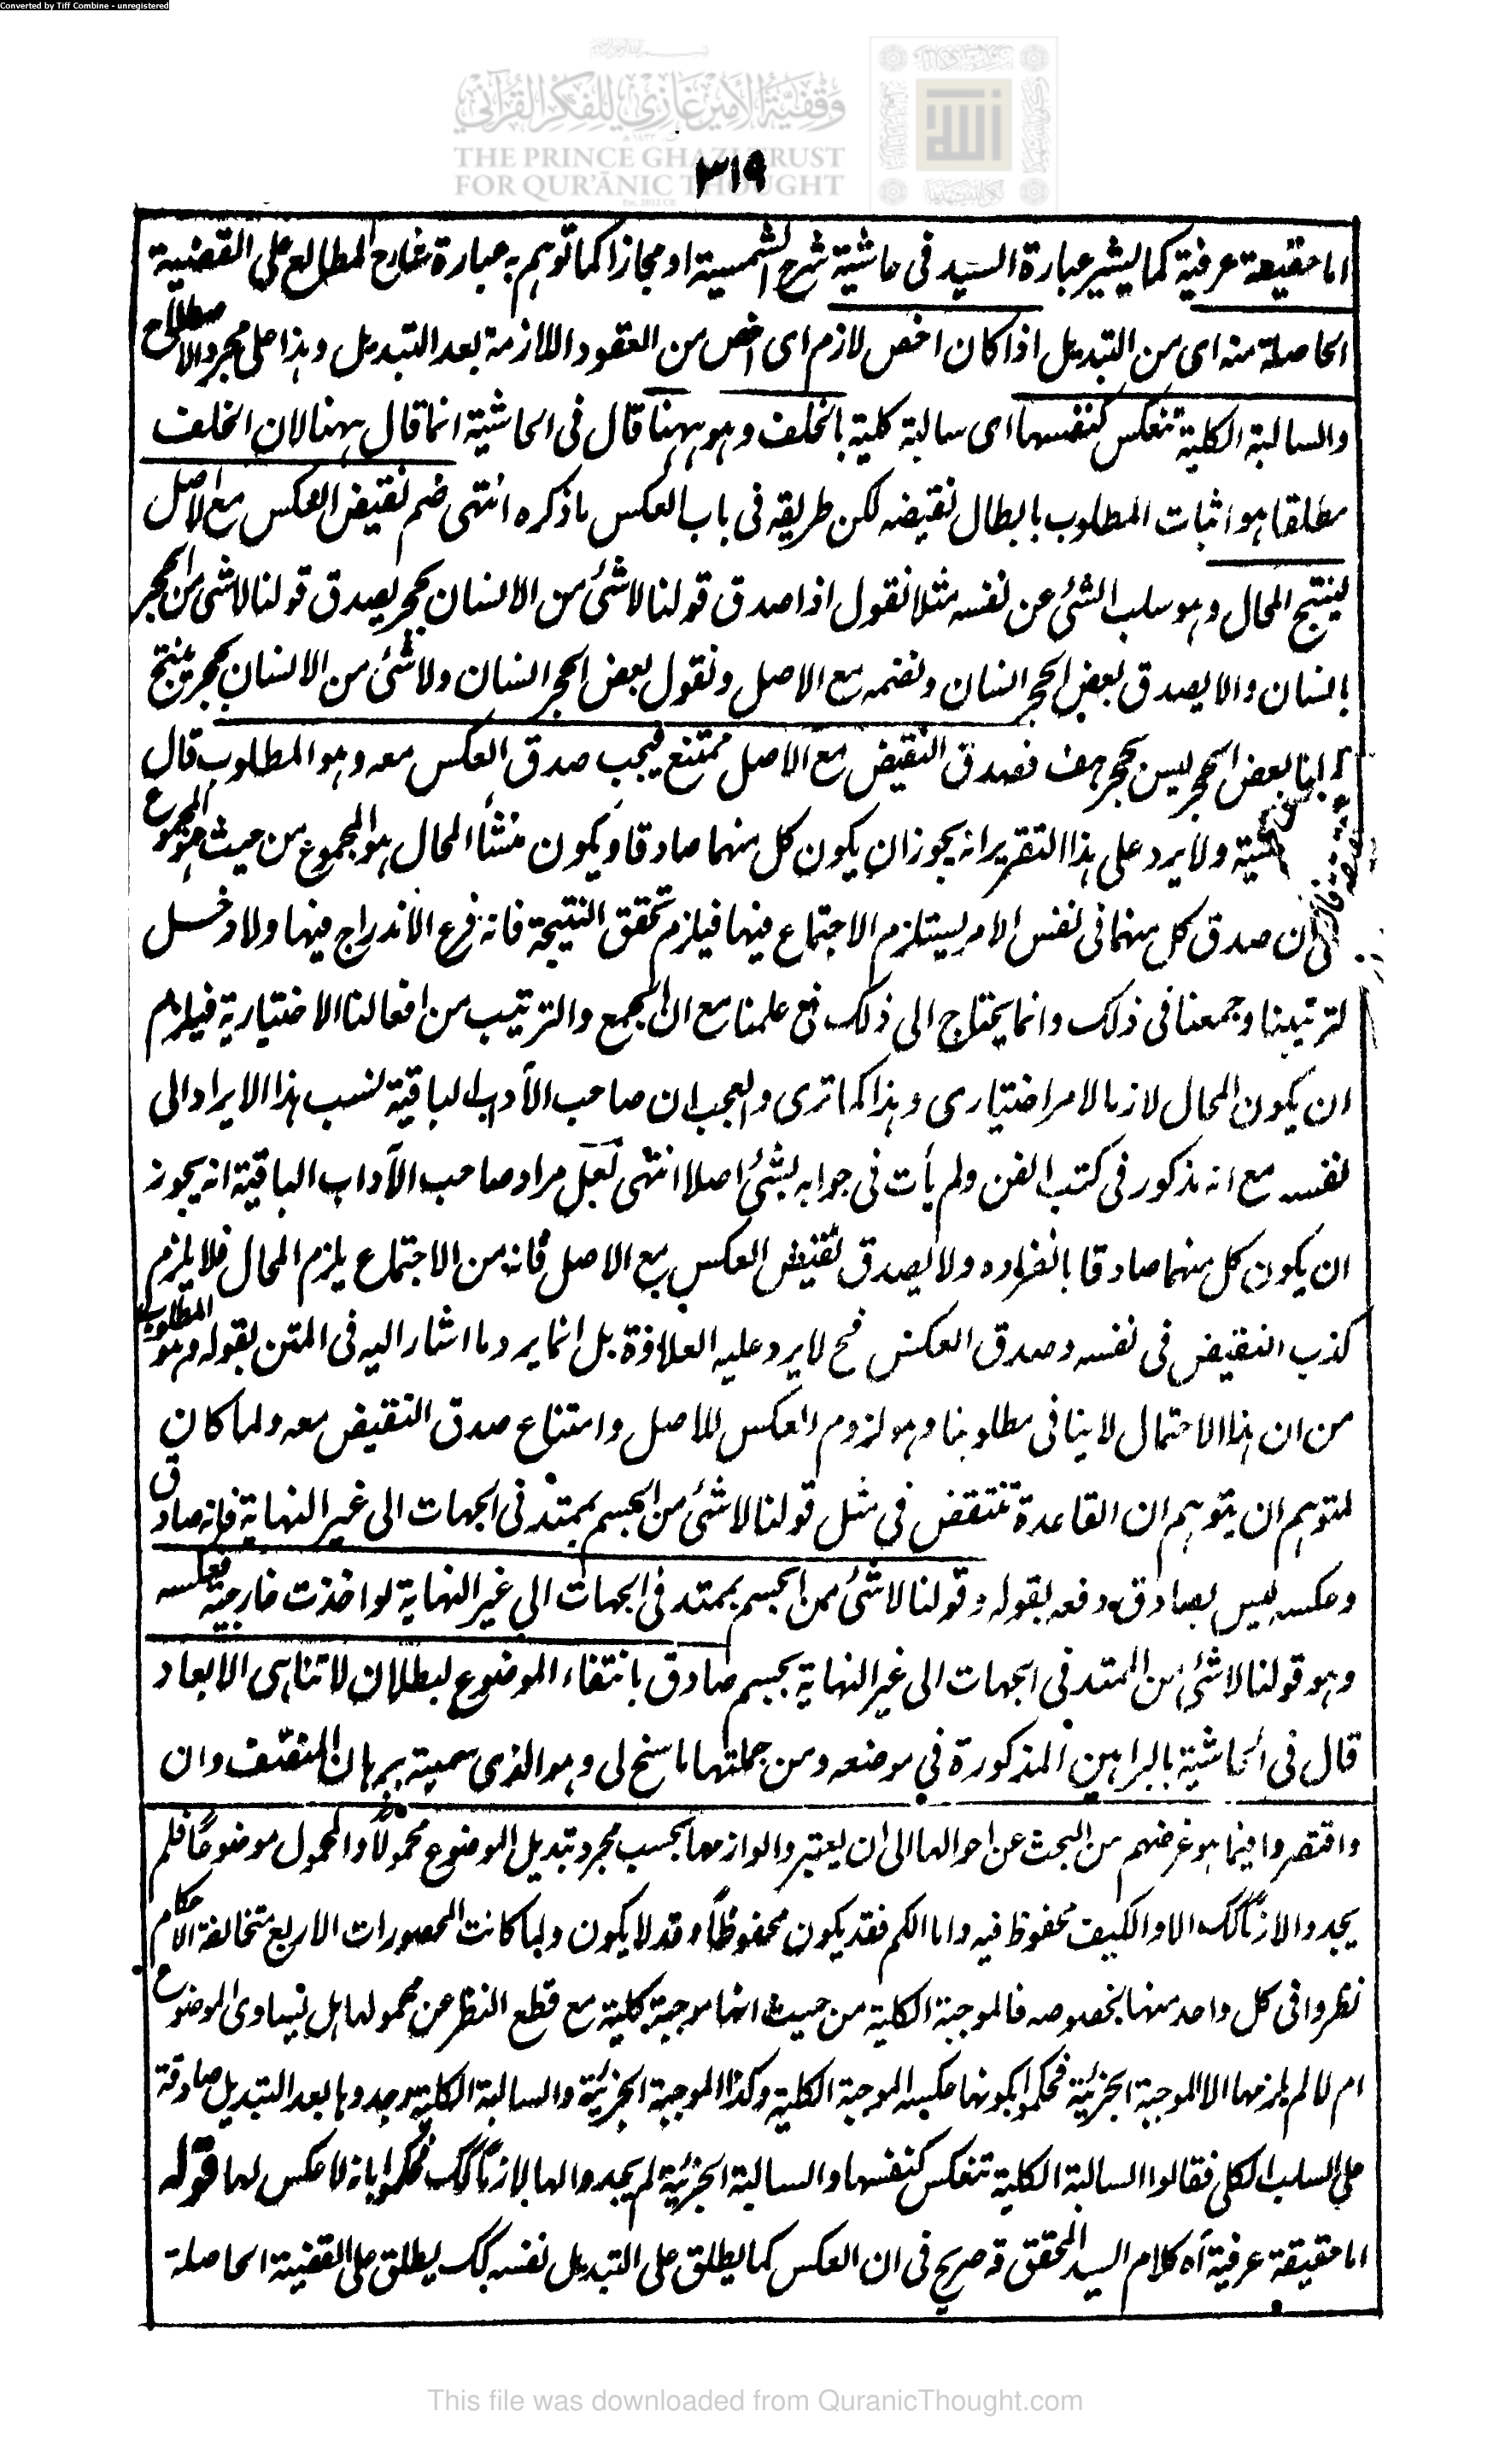 Converted by Tiff Combine - unregistered
وقفية الأمير غازي للفكر القرآني
THE PRINCE GHAZI TRUST
FOR QUR'ĀNIC THOUGHT
٣١٩
اما حقيقة عرفية كما يشير عبارة السيد فى حاشية شرح الشمسية او مجازا كما توهم به عبارة شارح المطالع على القضية
الحاصلة منه اى من التبديل اذا كان اخص لازم اى اخص من العقود اللازمة بعد التبديل وهذا على مجرد الاصطلاح
والسالبة الكلية تنعكس كنفسها اى سالبة كلية بالخلف وهو ههنا قال فى الحاشية انما قال ههنا لان الخلف
مطلقا هو اثبات المطلوب بابطال نقيضه لكن طريقه فى باب العكس ما ذكره انتهى ضم نقيض العكس مع الاصل
لينتج المحال وهو سلب الشئ عن نفسه مثلا نقول اذا صدق قولنا لا شئ من الانسان بحجر يصدق قولنا لا شئ من الحجر
بانسان والا يصدق بعض الحجر انسان ونضمه مع الاصل ونقول بعض الحجر انسان ولا شئ من الانسان بحجر ينتج
بعض الحجر ليس بحجر هف فصدق النقيض مع الاصل ممتنع فيجب صدق العكس معه وهو المطلوب قال
ولا يرد على هذا التقرير انه يجوز ان يكون كل منهما صادقا ويكون منشأ المحال هو المجموع من حيث هو المجموع
ان صدق كل منهما فى نفس الامر يستلزم الاجتماع فيها فيلزم تحقق النتيجة فانه فرع الاندراج فيها ولا دخل
لترتيبنا وجمعنا فى ذلك وانما يحتاج الى ذلك فى علمنا مع ان الجمع والترتيب من افعالنا الاختيارية فيلزم
ان يكون المحال لازما لامر اختيارى وهذا كما ترى والعجب ان صاحب الآداب الباقية نسب هذا الايراد الى
نفسه مع انه مذكور فى كتب الفن ولم يأت فى جوابه بشئ اصلا انتهى لعل مراد صاحب الآداب الباقية انه يجوز
ان يكون كل منهما صادقا بانفراده ولا يصدق نقيض العكس مع الاصل فانه من الاجتماع يلزم المحال فلا يلزم
كذب النقيض فى نفسه وصدق العكس فح لا يرد عليه العلاوة بل انما يرد ما اشار اليه فى المتن بقوله وهو المطلوب
من ان هذا الاحتمال لا ينافى مطلوبنا وهو لزوم العكس للاصل وامتناع صدق النقيض معه ولما كان
لمتوهم ان يتوهم ان القاعدة تنتقض فى مثل قولنا لا شئ من الجسم بممتد فى الجهات الى غير النهاية فانه صادق
وعكسه ليس بصادق دفعه بقوله وقولنا لا شئ من الجسم بممتد فى الجهات الى غير النهاية لو اخذت خارجية فعكسه
وهو قولنا لا شئ من الممتد فى الجهات الى غير النهاية بجسم صادق بانتفاء الموضوع لبطلان لا تناهى الابعاد
قال فى الحاشية بالبراهين المذكورة فى موضعه ومن جملتها ما سنح لى وهو الذى سميته ببرهان وان
واقتصروا فيما هو غرضهم من البحث عن احوالها الى ان يعتبروا لوازمها بحسب مجرد تبديل الموضوع محمولاً والمحمول موضوعاً فلم
يجدوا لازماً كك الا والكيف محفوظ فيه واما الكم فقد يكون محفوظاً وقد لا يكون ولما كانت المحصورات الاربع متخالفة الاحكام
نظروا فى كل واحد منها بخصوصه فالموجبة الكلية من حيث انها موجبة كلية مع قطع النظر عن محمولها هل يساوى الموضوع
ام لا لم يلزمها الا الموجبة الجزئية فحكموا بكونها عكس الموجبة الكلية وكذا الموجبة الجزئية والسالبة الكلية وجدوها بعد التبديل صادقة
على السلب الكلى فقالوا السالبة الكلية تنعكس كنفسها والسالبة الجزئية لم يجدوا لها لازماً كك فحكموا بانه لا عكس لها قوله
اما حقيقة عرفية آه كلام السيد المحقق قه صريح فى ان العكس كما يطلق على التبديل نفسه كك يطلق على القضية الحاصلة
This file was downloaded from QuranicThought.com